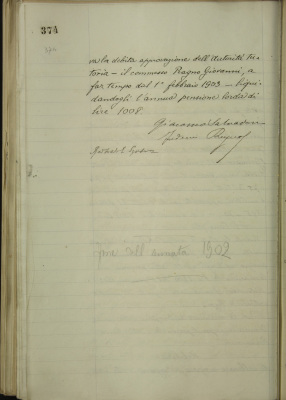 374
va la debita approvazione dell'Autorità Tu-
toria - il commesso Ragno Giovanni, a
far tempo dal 1° febbraio 1903 - liqui-
dandogli l'annua pensione lorda di
lire 1008.
Giacomo
fine dell'annata 1902